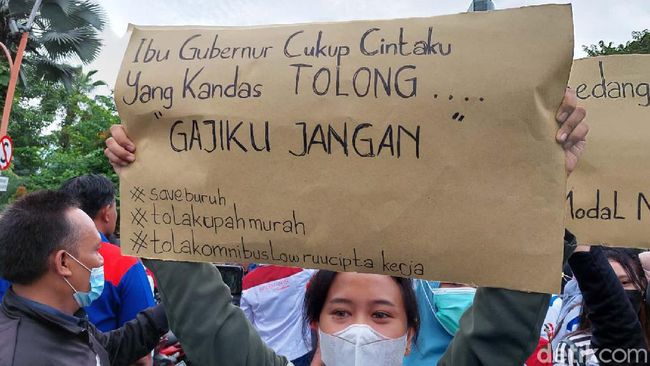 Ibu Gubernur Cukup Cintaku
Yang Kandas TOLONG ....
"GAJIKU JANGAN"
#saveburuh
#tolakupahmurah
#tolakomnibuslowruucipta kerja
edang
Modal N
detikcom